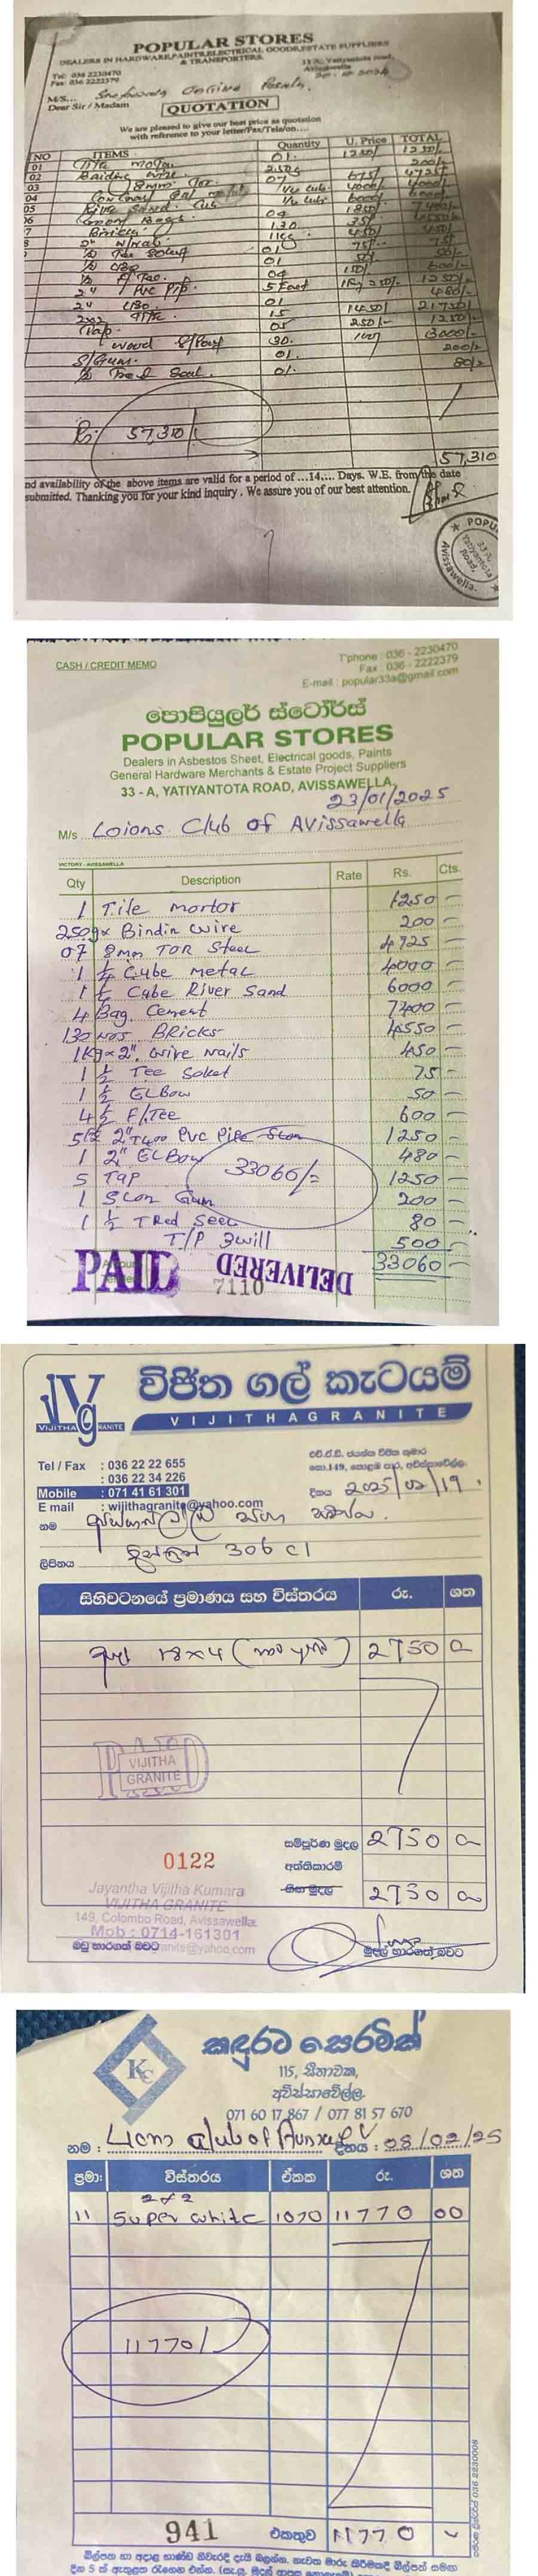 POPULAR STORES
DEALERS IN HARDWARE,PAINTS,ELECTRICAL GOODS,ESTATE SUPPLIERS
& TRANSPORTERS.
Tel: 036 2230470
Fax: 036 2222379
M/S...
Dear Sir / Madam
QUOTATION
We are pleased to give our best price as quotation
with reference to your letter/Fax/Tele/on....
NO ITEMS Quantity U. Price TOTAL
01 Tile Motor 01. 1250/ 1250/
02 Baiding wire. 200/
03 8mm Tor 07 675/ 4725/
04 1/4 cub. 4000/ 4000/
05 River Sand 6000/
04
130
1kg
01 75/-
01
04 150/
2" PVC Pip. 5 Feet
2" LBo. 01 480/-
2x2 Tile 15 1450/ 21,750/
Tap. 05 250/- 1250/-
Wood 30. 100/ 3000/-
S/Gum. 01. 200/-
01. 80/-
57,310/
57,310
nd availability of the above items are valid for a period of ...14.... Days. W.E. from the date
submitted. Thanking you for your kind inquiry . We assure you of our best attention.
★ POPU
33 A,
Yatiyantota
Road,
Avissawella.
CASH / CREDIT MEMO
T'phone : 036 - 2230470
Fax : 036 - 2222379
E-mail : popular33a@gmail.com
පොපියුලර් ස්ටෝර්ස්
POPULAR STORES
Dealers in Asbestos Sheet, Electrical goods, Paints
General Hardware Merchants & Estate Project Suppliers
33 - A, YATIYANTOTA ROAD, AVISSAWELLA.
23/01/2025
M/s Loions Club of Avissawella
VICTORY - AVISSAWELLA
Qty Description Rate Rs. Cts.
1 Tile mortor 1250 –
250g x Bindin wire 200 –
07 8mm TOR Steel 4725 –
1 1/4 Cube metal 4000 –
1 1/4 Cube River Sand 6000 –
4 Bag. Cement 7400 –
130 Nos BRicks 4550 –
1Kg x 2" wire nails 450 –
1 1/2 Tee Soket 75 –
1 1/2 ELBow 50 –
4 1/2 F/Tee 600 –
5ft 2" T400 PVC Pipe Slon 1250 –
1 2" ELBow 480 –
5 Tap 1250 –
1 Slon Gum 200 –
1 1/2 TRed Seel 80 –
T/P 3will 500 –
33060/=
33060 –
PAID
DELIVERED
7110
VIJITHA GRANITE
විජිත ගල් කැටයම්
VIJITHAGRANITE
Tel / Fax : 036 22 22 655
: 036 22 34 226
Mobile : 071 41 61 301
E mail : wijithagranite@yahoo.com
එච්.ඒ.ඩී. ජයන්ත විජිත කුමාර
නො.149, කොළඹ පාර, අවිස්සාවේල්ල.
දිනය 2025/02/19.
නම
ලිපිනය 306 C1
සිහිවටනයේ ප්‍රමාණය සහ විස්තරය රු. ශත
18 x 4 2750
PAID
VIJITHA
GRANITE
සම්පූර්ණ මුදල 2750
අත්තිකාරම්
හිඟ මුදල 2750
0122
Jayantha Vijitha Kumara
VIJITHA GRANITE
149, Colombo Road, Avissawella.
Mob : 0714-161301
anite@yahoo.com
බඩු භාරගත් බවට
මුදල් භාරගත් බවට
KC
කඳුරට සෙරමික්
115, සීතාවක,
අවිස්සාවේල්ල.
071 60 17 867 / 077 81 57 670
නම : Lions club of දිනය : 08/02/25
ප්‍රමා: විස්තරය ඒකක රු. ශත
2x2
11 Super white 1070 11770 00
11770/
941
එකතුව 11770